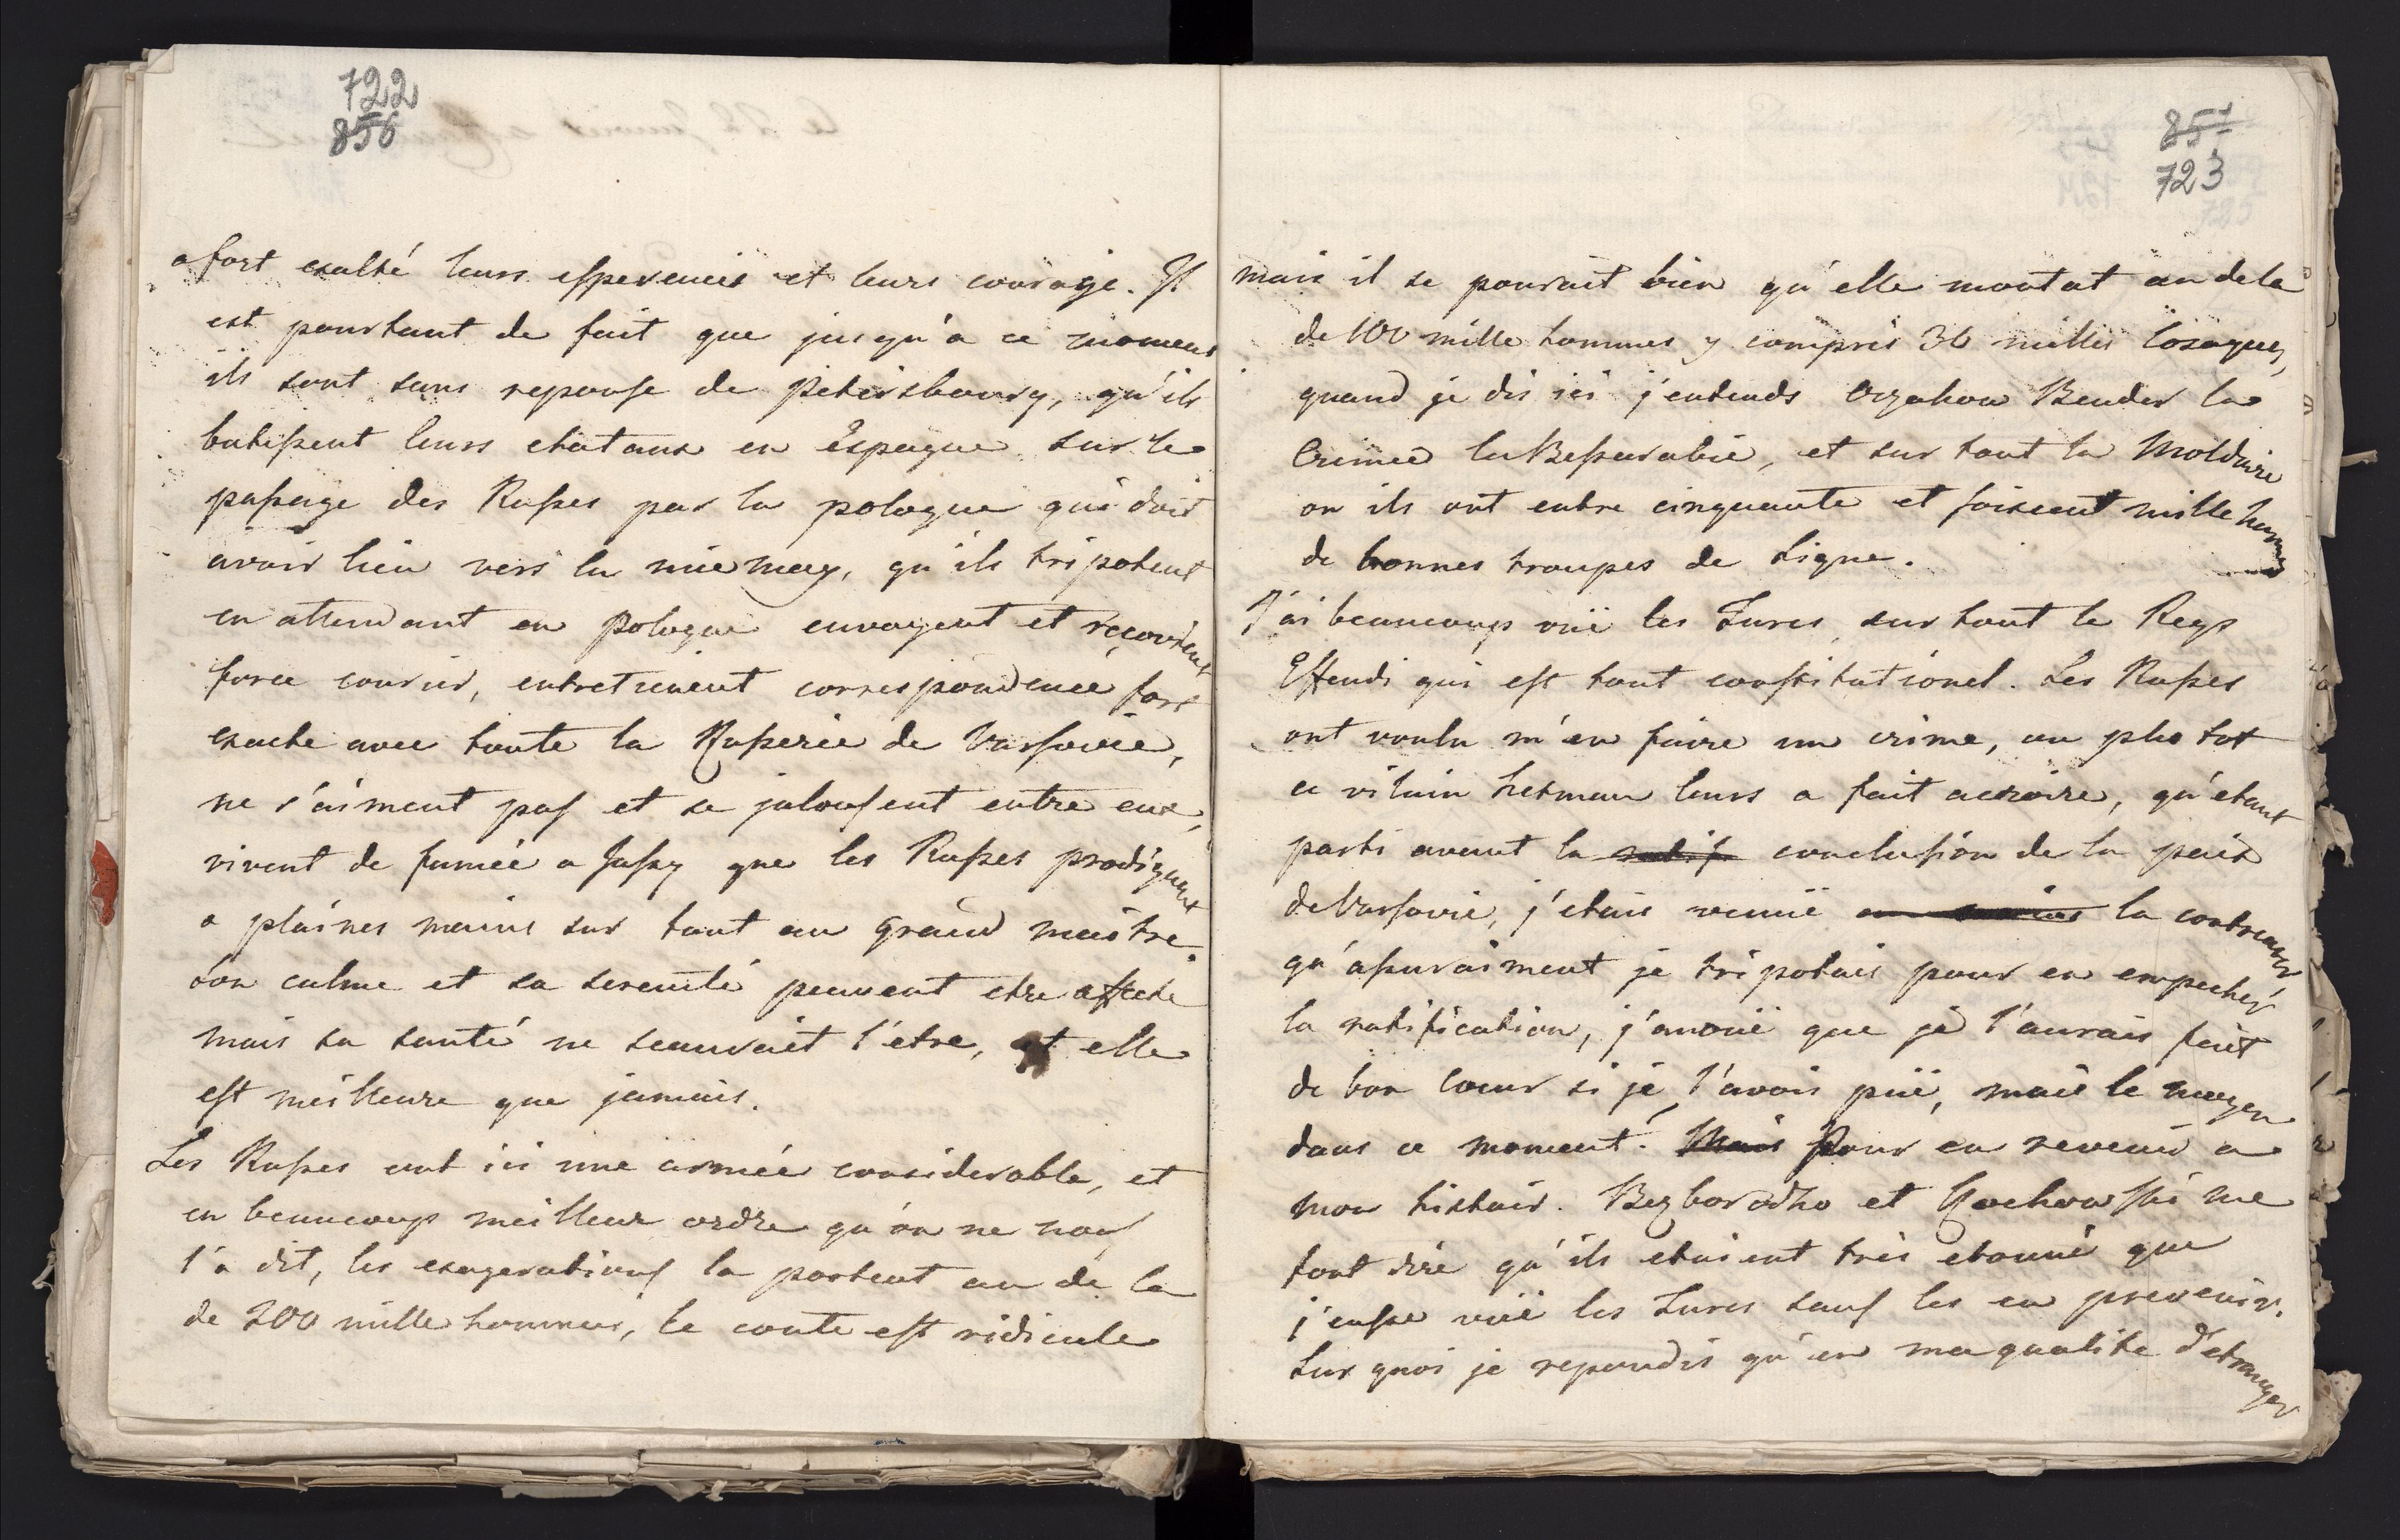 722
856
a fort exalté leurs esperences et leurs courage. Il
est pourtant de fait que jusqu'a ce moment
ils sont sans reponse de Petersbourg, qu'ils
batissent leurs chataux en Espagne sur le
passage des Russes par la pologne qui doit
avoir lieu vers la mie may, qu'ils tripotent
en attendant en Pologne envoyent et reçoivent
force courier, entretienent correspondence fort
exacte avec toute la Russerie de Varsovie,
ne s'aiment pas et se jalousent entre eux,
vivent de fumée a Jassy que les Russes prodiguent
a plaines mains sur tout au Grand maitre.
Son calme et sa serenité peuvent etre affecte
mais sa santé ne scauroit l'etre, et elle
est meilleure que jamais.
Les Russes ont ici une armée considerable, et
en beaucoup meilleur ordre qu'on ne nous
l'a dit, les exagerations la portent au de la
de 200 mille hommes, le conte est ridicule
857
723
mais il se pourait bien qu'elle montat au dela
de 100 mille hommes y compris 36 milles Cosaques,
quand je dis ici j'entends Oczakow Bender la
Crimée la Bessarabie, et sur tout la Moldavie
ou ils ont entre cinquante et soixent mille hommes
de bonnes troupes de Ligne.
J'ai beaucoup vüe les Turcs, sur tout le Reys
Effendi qui est tout constitutionel. Les Russes
ont voulu m'en faire un crime, ou plutot
ce vilain hetman leurs a fait accroire, qu'etant
parti avant la conclusion de la paix
de Varsovie, j'etais venüe la contrecarrer
qu'assuraiment je tripotais pour en empecher
la ratification, j'avoüe que je l'aurais fait
de bon coeur si je l'avois püe, mais le moyen
dans ce moment. Mais Pour en revenir a
mon histoir. Bezborodko et Kochowski me
font dire qu'ils etaient très etonné que
j'eusse vüe les Turcs sans les en prevenir.
Sur quoi je repondis qu'en ma qualite d'etranger